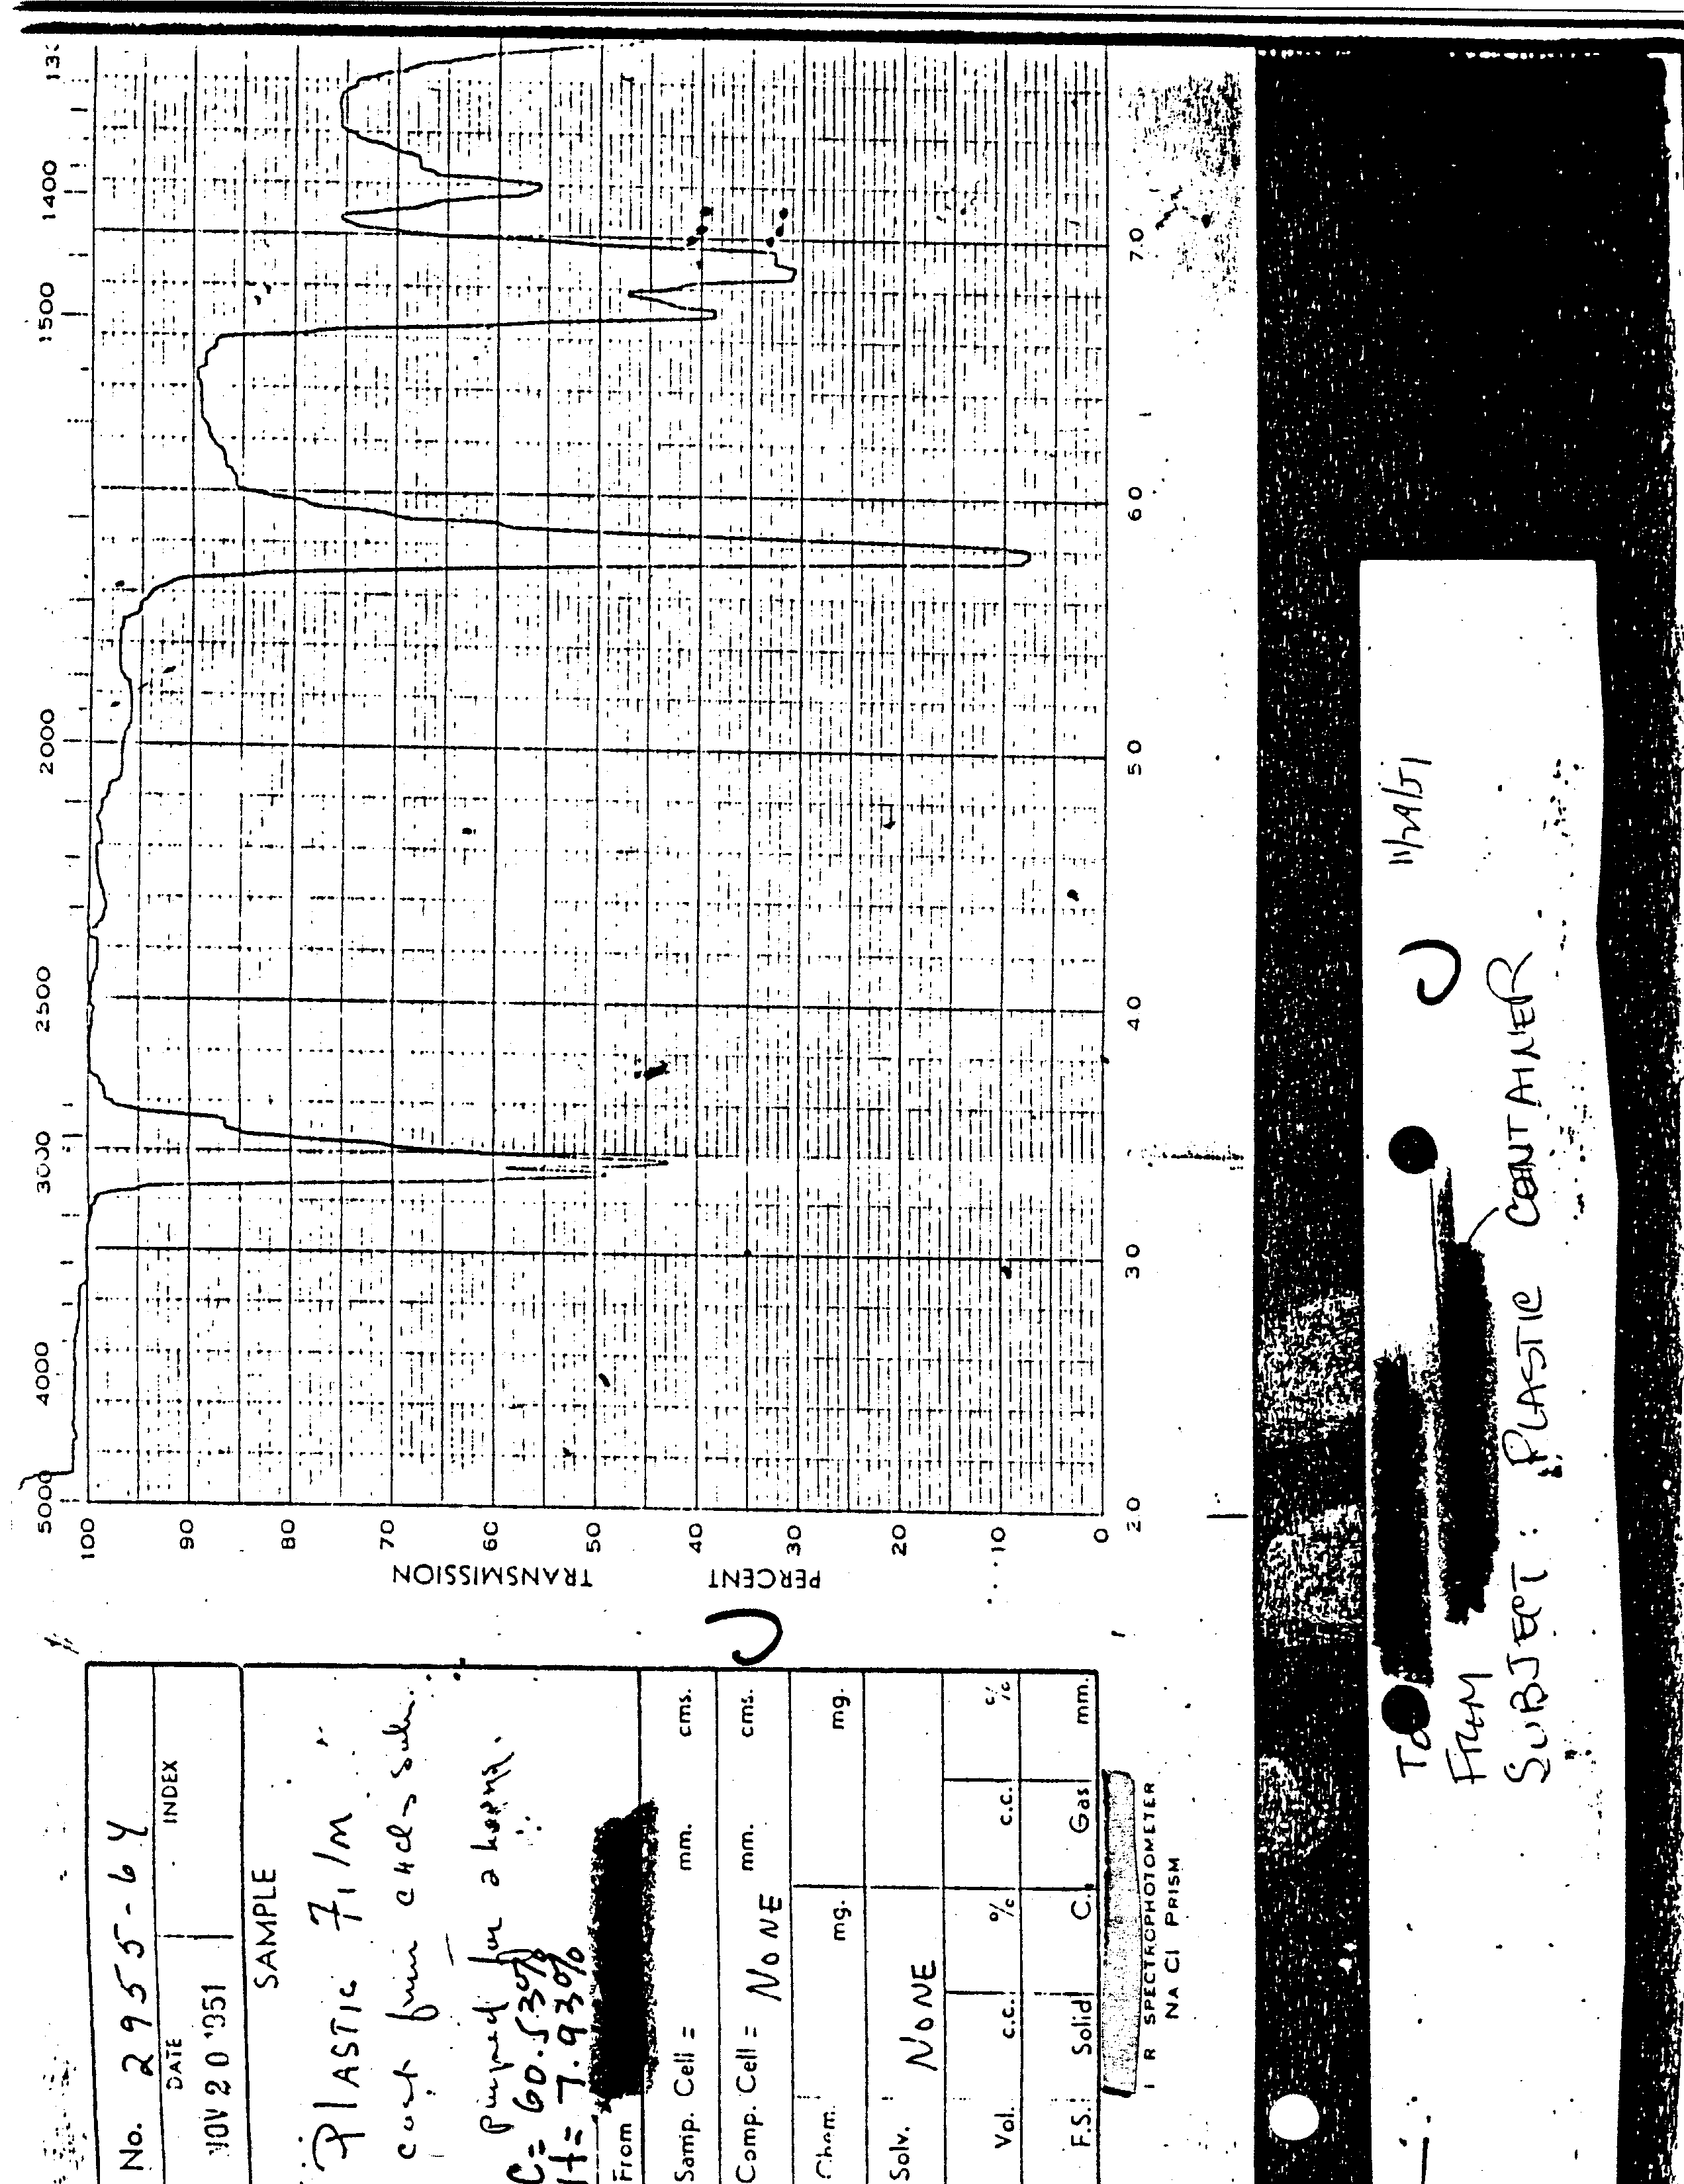 No. 2955-64
DATE
INDEX
NOV 20 1951
SAMPLE
PLASTIC FILM
cast from CHCl3 soln.
Pumped for 2 hours.
C= 60.53%
H= 7.93%
From
Samp. Cell = mm. cms.
Comp. Cell = NONE mm. cms.
Chem. mg. mg.
Solv. NONE
Vol. c.c. % c.c. %
F.S.: Solid C. Gas mm.
I R SPECTROPHOTOMETER
NA Cl PRISM
5000 4000 3000 2500 2000 1500 1400
100
90
80
70
60
50
40
30
20
10
0
PERCENT TRANSMISSION
2.0 3.0 4.0 5.0 6.0 7.0
To 11/29/51
FROM
SUBJECT: PLASTIC CONTAINER